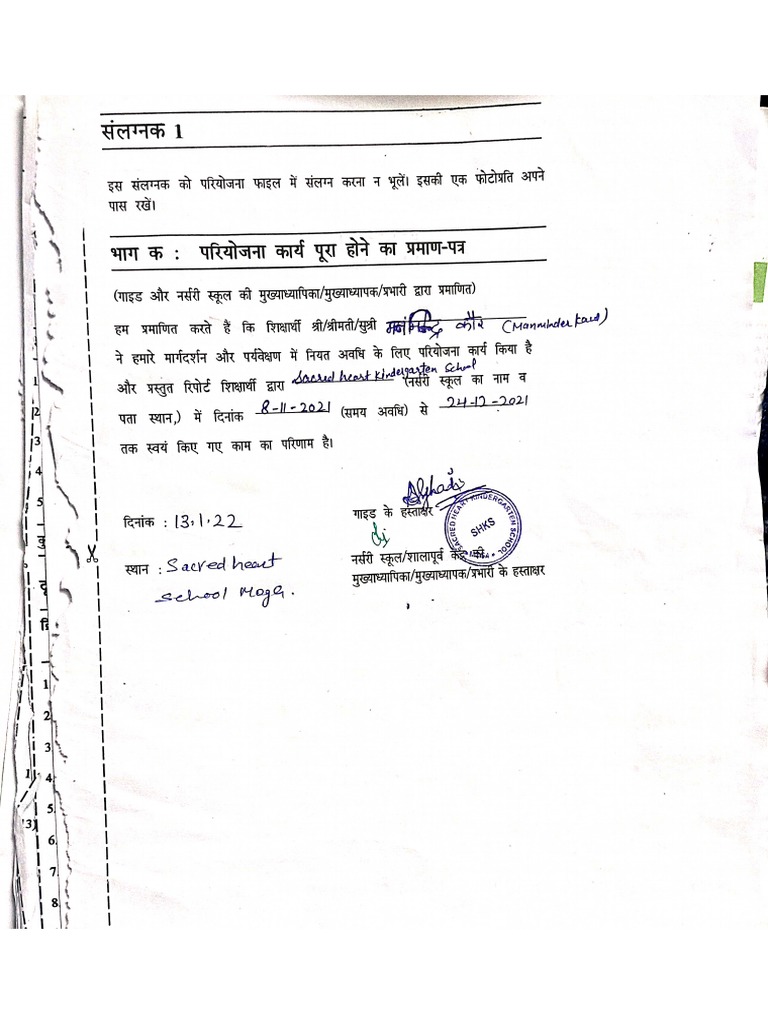 संलग्नक 1
इस संलग्नक को परियोजना फाइल में संलग्न करना न भूलें। इसकी एक फोटोप्रति अपने
पास रखें।
भाग क : परियोजना कार्य पूरा होने का प्रमाण-पत्र
(गाइड और नर्सरी स्कूल की मुख्याध्यापिका/मुख्याध्यापक/प्रभारी द्वारा प्रमाणित)
हम प्रमाणित करते हैं कि शिक्षार्थी श्री/श्रीमती/सुश्री कौर (Manminder Kaur)
ने हमारे मार्गदर्शन और पर्यवेक्षण में नियत अवधि के लिए परियोजना कार्य किया है
और प्रस्तुत रिपोर्ट शिक्षार्थी द्वारा Sacred heart Kindergarten School (नर्सरी स्कूल का नाम व
पता स्थान,) में दिनांक 8-11-2021 (समय अवधि) से 24-12-2021
तक स्वयं किए गए काम का परिणाम है।
दिनांक : 13.1.22
गाइड के हस्ताक्षर
SACRED HEART KINDERGARTEN SCHOOL
SHKS
स्थान : Sacred heart
School Moga.
नर्सरी स्कूल/शालापूर्व केंद्र की
मुख्याध्यापिका/मुख्याध्यापक/प्रभारी के हस्ताक्षर
1
2
3
4
5
1
2
3
4.
5.
6.
7.
8.